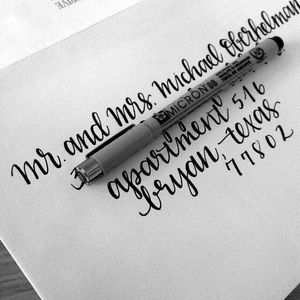 Mr. and Mrs. Michael Oberhelman
MICRON 08
apartment 516
bryan, texas
77802